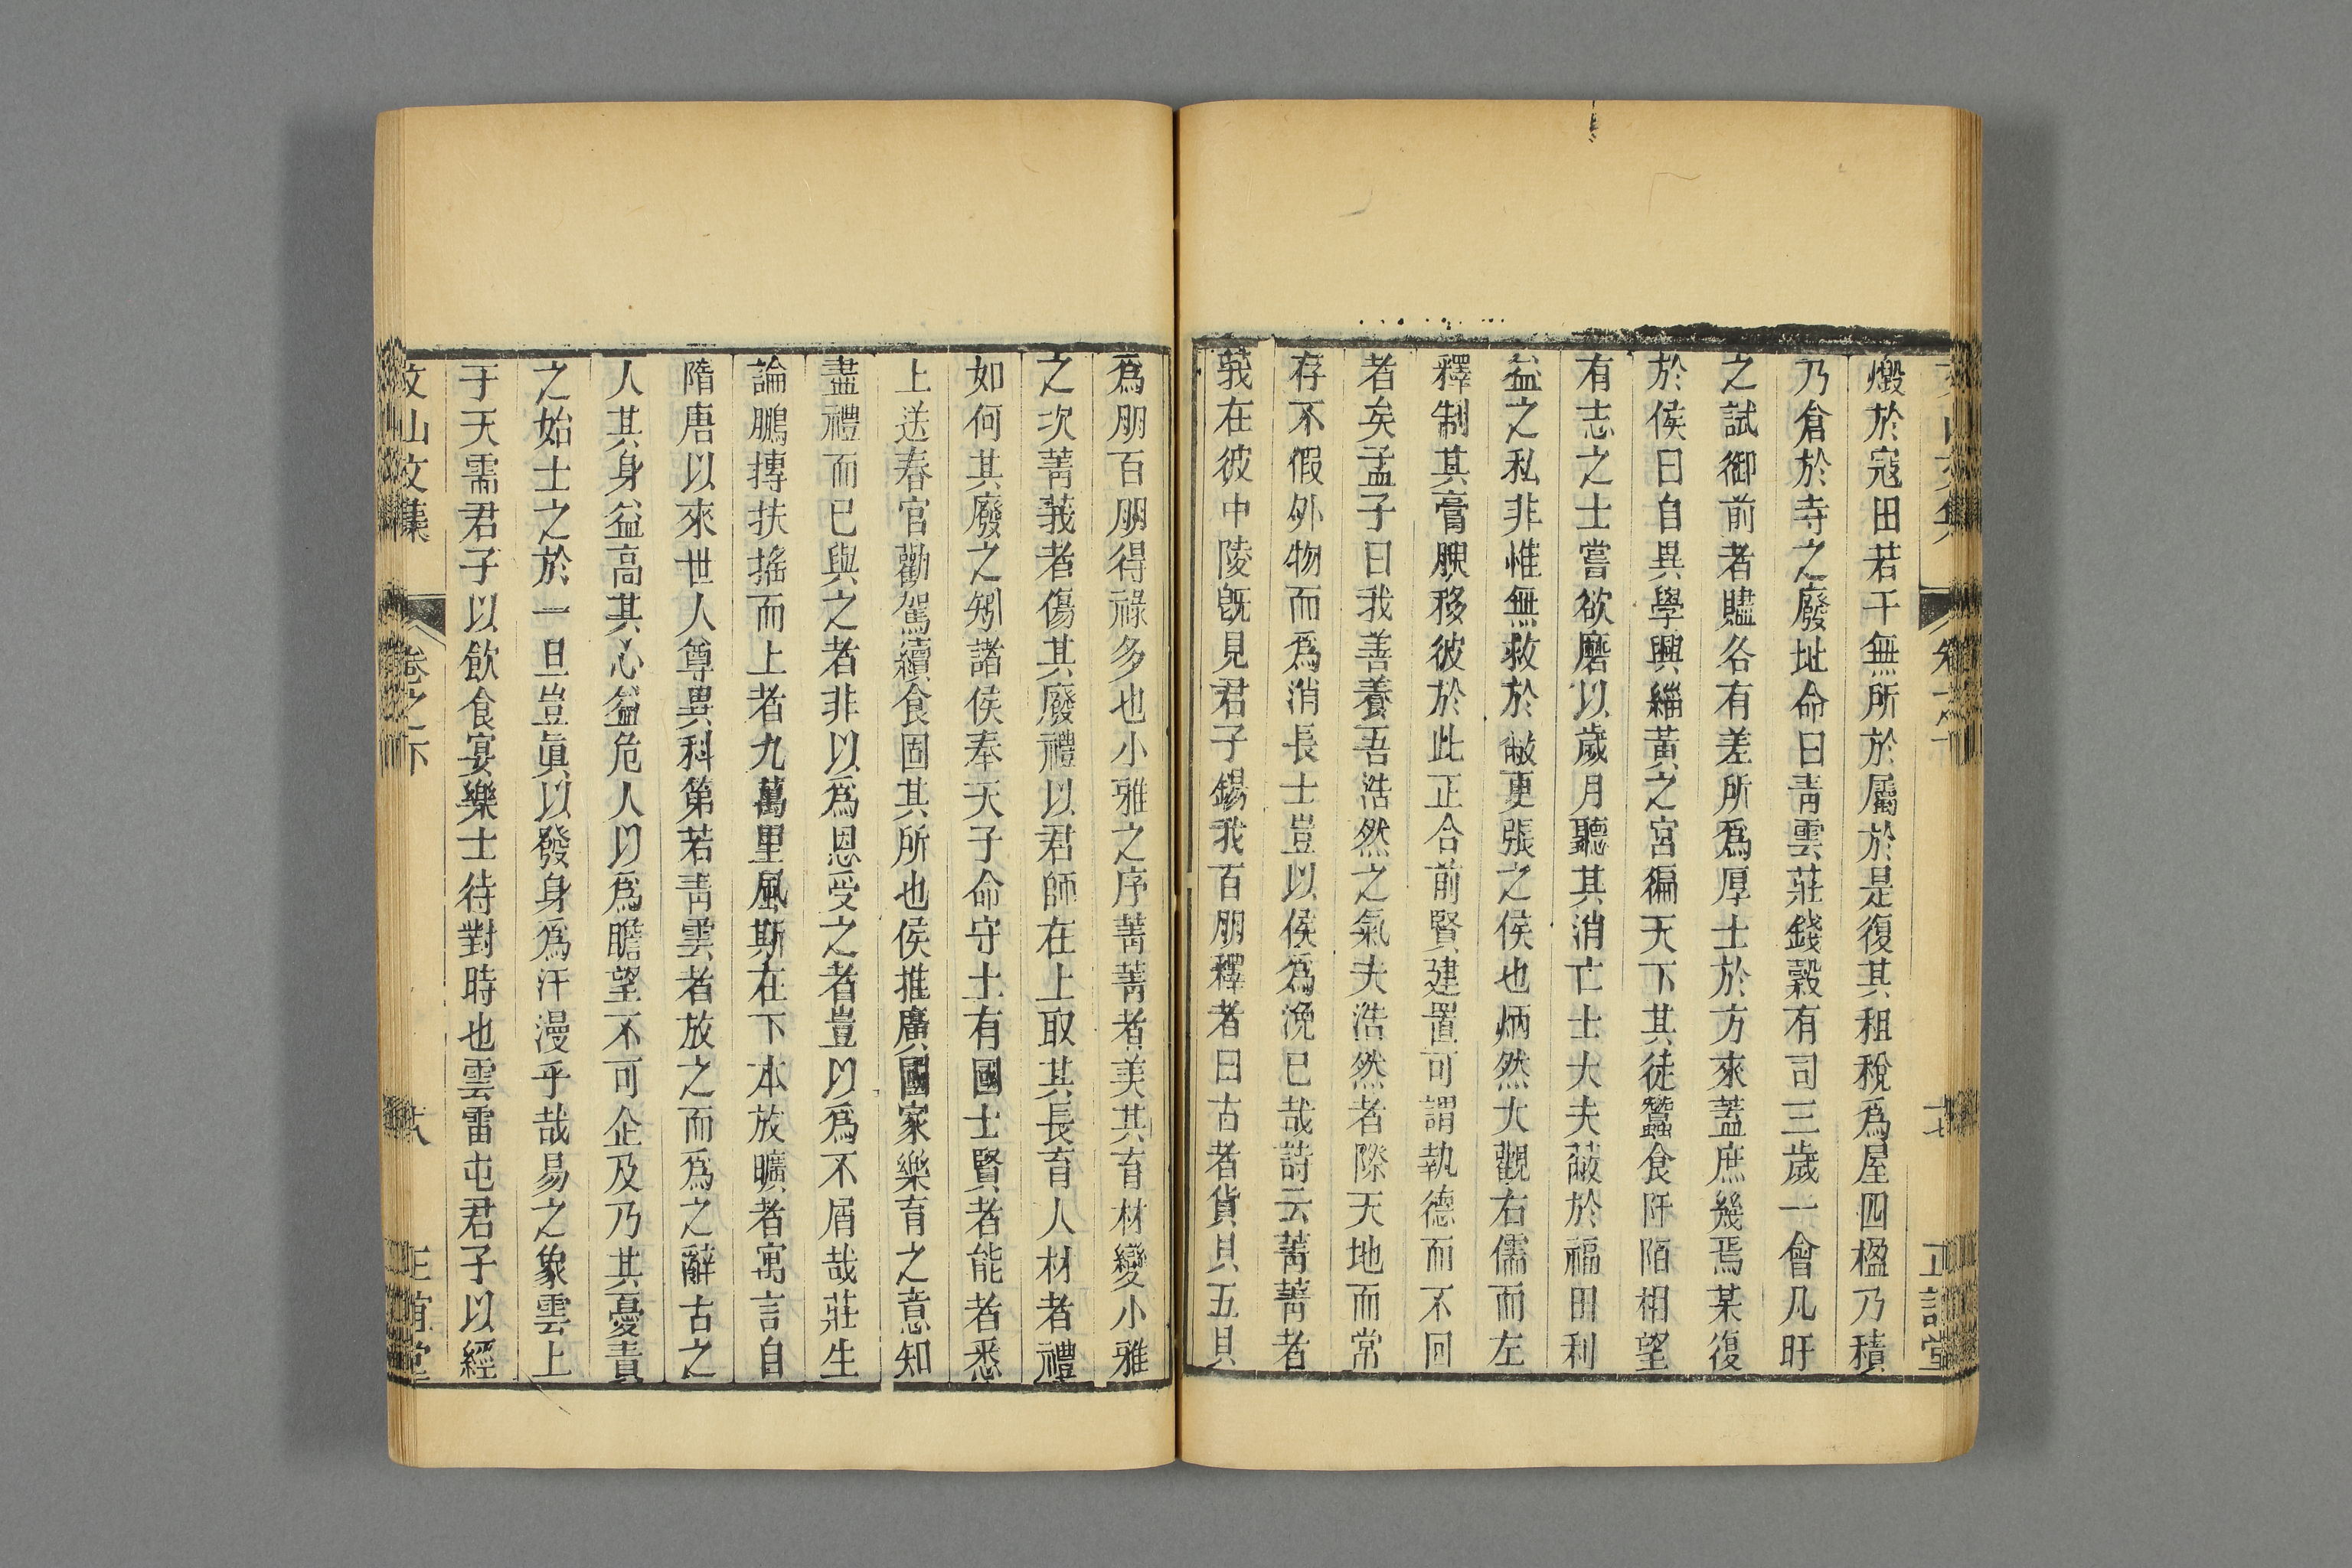 燬於寇田若干無所於屬於是復其租稅爲屋四楹乃積
乃倉於寺之廢址命曰靑雲莊錢穀有司三歲一會凡旴
之試御前者贐各有差所爲厚士於方來蓋庶幾焉某復
於侯曰自異學興緇黃之宮徧天下其徒蠶食阡陌相望
有志之士嘗欲磨以歲月聽其消亡士大夫蔽於福田利
益之私非惟無救於敝更張之侯也炳然大觀右儒而左
釋制其膏腴移彼於此正合前賢建置可謂執德而不回
者矣孟子曰我善養吾浩然之氣夫浩然者際天地而常
存不假外物而爲消長士豈以侯爲浼已哉詩云菁菁者
莪在彼中陵旣見君子錫我百朋釋者曰古者貨貝五貝
爲朋百朋得祿多也小雅之序菁菁者美其育材變小雅
之次菁莪者傷其廢禮以君師在上取其長育人材者禮
如何其廢之矧諸侯奉天子命守土有國士賢者能者悉
上送春官勸駕續食固其所也侯推廣國家樂育之意知
盡禮而已與之者非以爲恩受之者豈以爲不屑哉莊生
論鵬摶扶搖而上者九萬里風斯在下本放曠者寓言自
隋唐以來世人尊異科第若靑雲者放之而爲之辭古之
人其身益高其心益危人以爲瞻望不可企及乃其憂責
之始士之於一旦豈眞以發身爲汗漫乎哉易之象雲上
于天需君子以飮食宴樂士待對時也雲雷屯君子以經
文山文集
卷之下
六